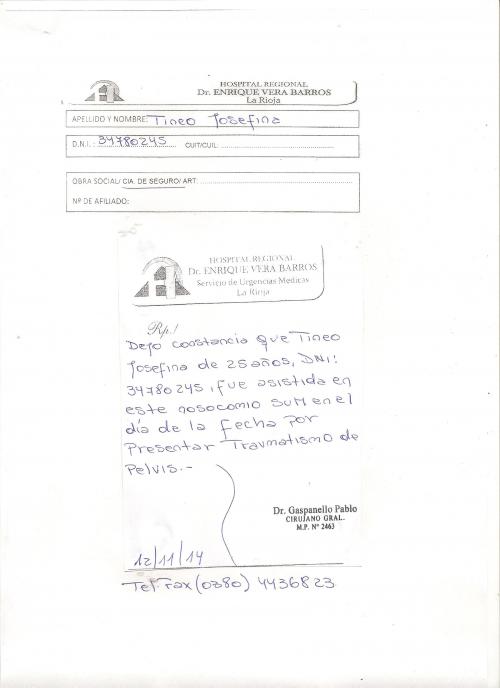 HOSPITAL REGIONAL
Dr. ENRIQUE VERA BARROS
La Rioja
APELLIDO Y NOMBRE: Tineo Josefina
D.N.I.: 34780245 CUIT/CUIL:
OBRA SOCIAL/ CIA. DE SEGURO/ ART:
Nº DE AFILIADO:
HOSPITAL REGIONAL
Dr. ENRIQUE VERA BARROS
Servicio de Urgencias Medicas
La Rioja
Rp.!
Dejo constancia que Tineo
Josefina de 25 años, DNI:
34780245, fue asistida en
este nosocomio SUM en el
día de la fecha por
Presentar Traumatismo de
Pelvis.-
Dr. Gaspanello Pablo
CIRUJANO GRAL.
M.P. Nº 2463
12/11/14
Tel Fax (0380) 4436823